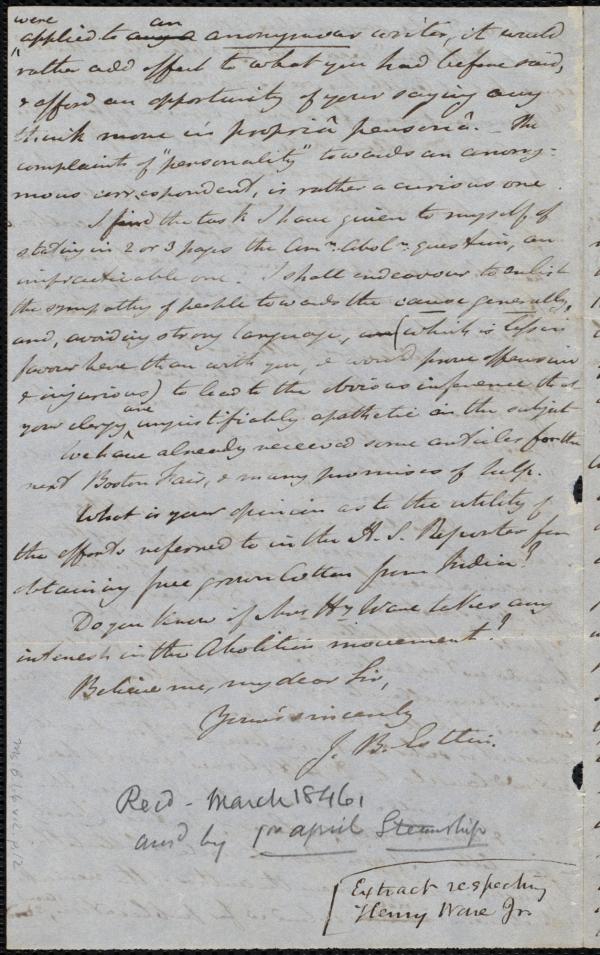 were an
applied to any a anonymous writer, it would
rather add effect to what you had before said,
& afford an opportunity of your saying any
think more in propriâ personâ. The
complaint of "personality" towards an anony-
mous correspondent, is rather a curious one.
I find the task I have given to myself of
stating in 2 or 3 pages the Amn. Aboln. question, an
impracticable one. I shall endeavour to enlist
the sympathy of people towards the cause generally,
and, avoiding strong language, (which is less in
favour here than with you, & would prove offensive
& injurious) to lead to the obvious inference that
your clergy are unjustifiably apathetic on the subject
We have already received some articles for the
next Boston Fair, & many promises of help.
What is your opinion as to the utility of
the efforts referred to in the A. S. Reporter for
obtaining free grown Cotton from India?
Do you know if Mrs Hy Ware takes any
interest in the Abolition movement?
Believe me, my dear Sir,
Yours sincerely
J. B. Estlin.
Rec'd - March 1846,
ans'd by 1st april Steamship
Extract respecting
Henry Ware Jr.